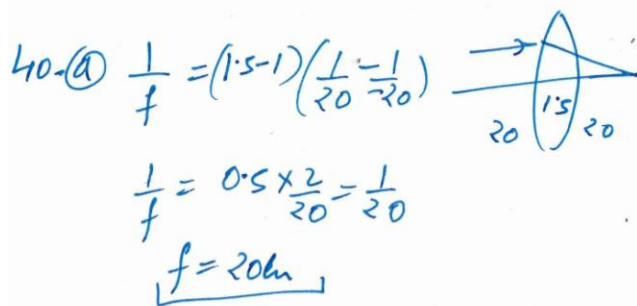 40. (a) 1/f = (1.5-1)(1/20 - 1/-20)
1.5
20 20
1/f = 0.5 × 2/20 = 1/20
f = 20cm